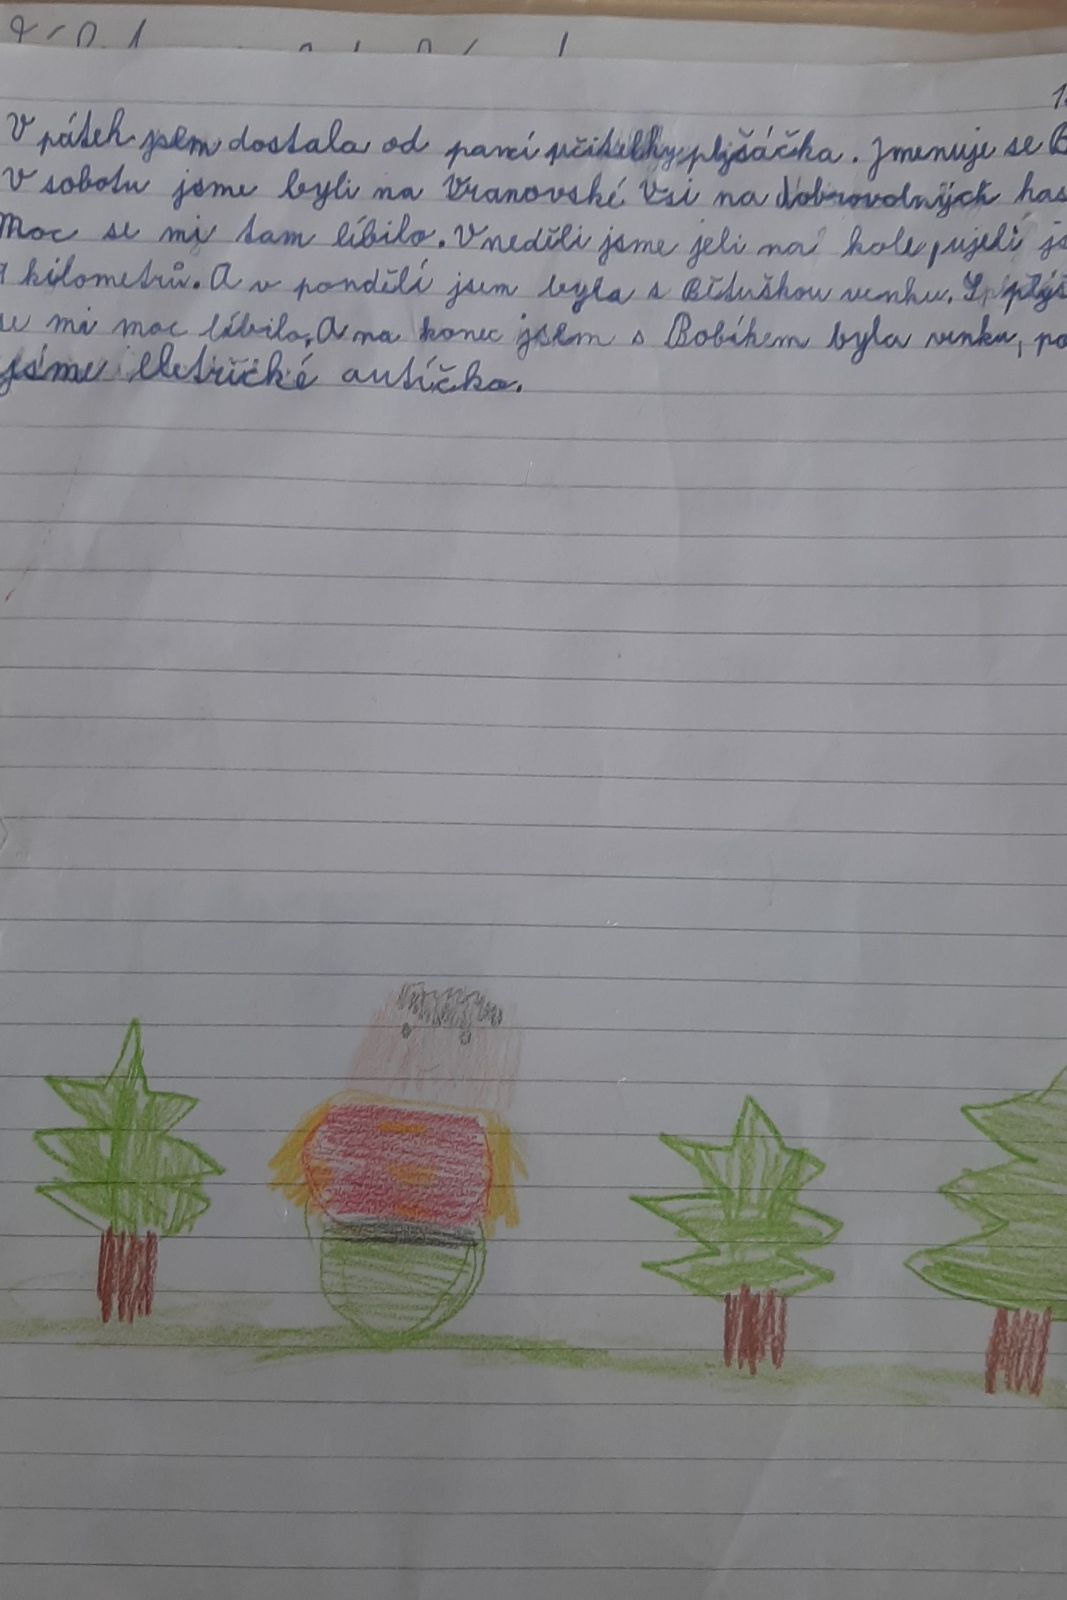 V pátek jsem dostala od paní učitelky plyšáčka. Jmenuje se B
V sobotu jsme byli na Vranovské Vsi na dobrovolných has
Moc se mi tam líbilo. V neděli jsme jeli na kole, ujeli js
kilometrů. A v pondělí jsem byla s Bětuškou venku. S plyš
se mi moc líbilo, A na konec jsem s Bobíkem byla venku, po
jsme eletrické autíčko.